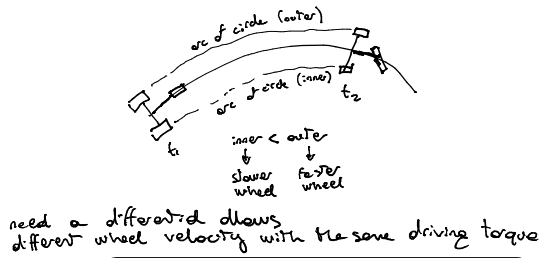 arc of circle (outer)
arc of circle (inner)
t1
t2
inner < outer
slower faster
wheel wheel
need a differential allows
different wheel velocity with the same driving torque